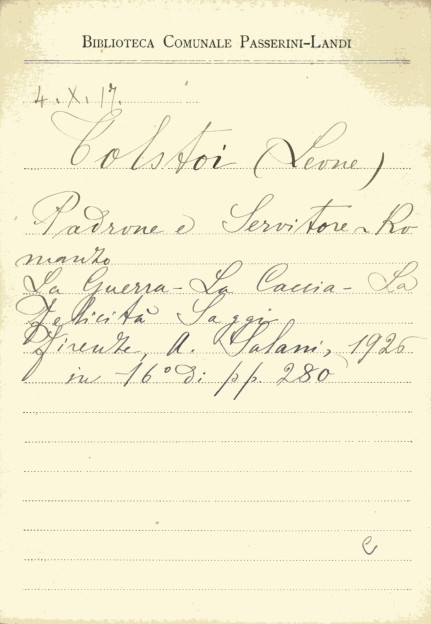 BIBLIOTECA COMUNALE PASSERINI-LANDI
4. X. 17.
Tolstoi (Leone)
Padrone e Servitore - Ro
manzo
La Guerra - La Caccia - La
Felicità Saggi
Firenze, A. Salani, 1925
in -16° di pp. 280
e